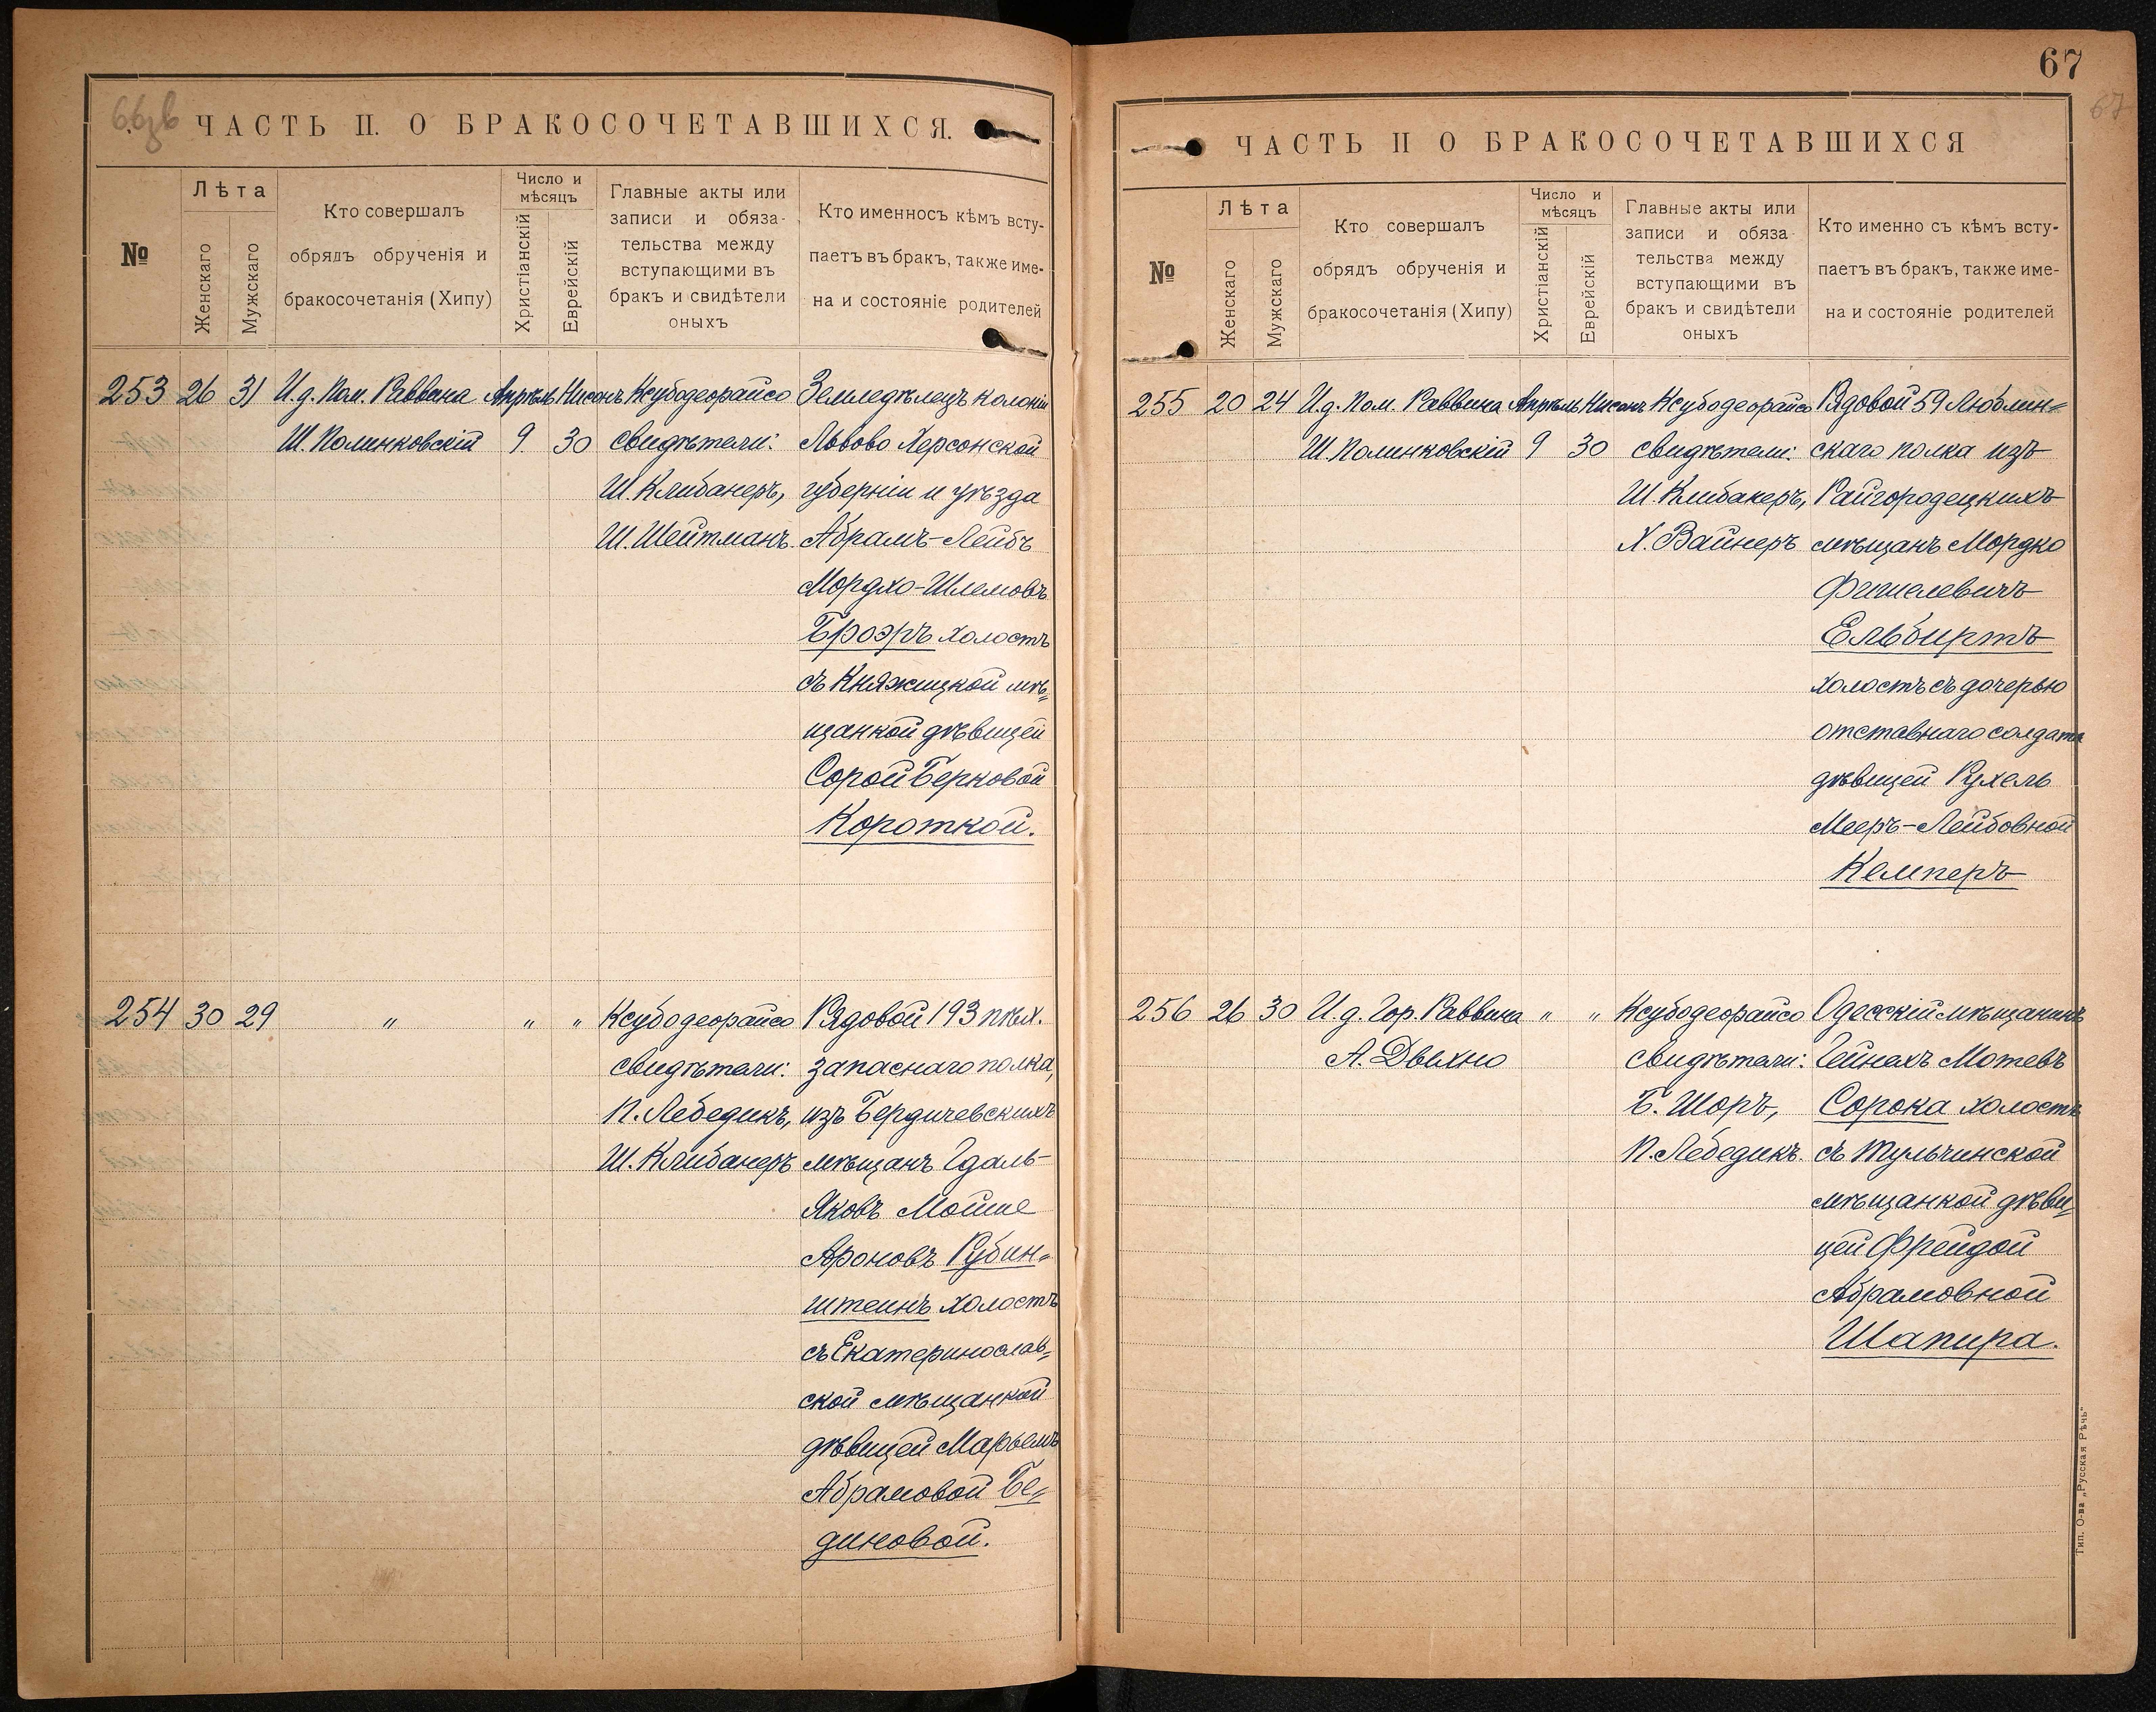 67
67
66зв
ЧАСТЬ II. О БРАКОСОЧЕТАВШИХСЯ.
№
Лѣта
Женскаго
Мужскаго
Кто совершалъ
обрядъ обрученія и
бракосочетанія (Хипу)
Число и
мѣсяцъ
Христіанскій
Еврейскій
Главные акты или
записи и обяза-
тельства между
вступающими въ
бракъ и свидѣтели
оныхъ
Кто именносъ кѣмъ всту-
паетъ въ бракъ, также име-
на и состояніе родителей
253 26 31 И.д. Пом. Раввина Апрѣль Нисанъ Ксубодеорайсо Земледѣлецъ колоніи
Ш. Полинковскій 9. 30 свидѣтели: Львово Херсонской
Ш. Клибанеръ, губерніи и уѣзда
Ш. Шейтманъ. Абрамъ-Лейбъ
Мордхо-Шлемовъ
Броэръ холостъ
съ Княжицкой мѣ=
щанкой дѣвицей
Сорой Берковой
Короткой.
254 30 29 „ „ „ Ксубодеорайсо Рядовой 193 пѣх.
свидѣтели: запаснаго полка,
П. Лебедикъ, изъ Бердичевскихъ
Ш. Клибанеръ мѣщанъ Гдаль-
Яковъ Мойше
Ароновъ Рубин=
штейнъ холостъ
съ Екатеринослав=
ской мѣщанкой
дѣвицей Марьемъ
Абрамовой Бе=
диновой.
ЧАСТЬ II О БРАКОСОЧЕТАВШИХСЯ
№
Лѣта
Женскаго
Мужскаго
Кто совершалъ
обрядъ обрученія и
бракосочетанія (Хипу)
Число и
мѣсяцъ
Христіанскій
Еврейскій
Главные акты или
записи и обяза-
тельства между
вступающими въ
бракъ и свидѣтели
оныхъ
Кто именно съ кѣмъ всту-
паетъ въ бракъ, также име-
на и состояніе родителей
255 20 24 И.д. Пом. Раввина Апрѣль Нисанъ Ксубодеорайсо Рядовой 59 Люблин=
Ш. Полинковскій 9 30 свидѣтели: скаго полка изъ
Ш. Клибанеръ, Райгородецкихъ
Х. Вайнеръ мѣщанъ Мордко
Фишелевичъ
Ельбиртъ
холостъ съ дочерью
отставнаго солдата
дѣвицей Рухель
Мееръ-Лейбовной
Кемперъ
256 26 30 И.д. Гор. Раввина „ „ Ксубодеорайсо Одесскій мѣщанинъ
А. Двыхно свидѣтели: Гейнехъ Мотевъ
Б. Шоръ, Сорока холостъ
П. Лебедикъ. съ Тульчинской
мѣщанкой дѣви=
цей Фрейдой
Абрамовной
Шапира.
Тип. О-ва „Русская Рѣчь“